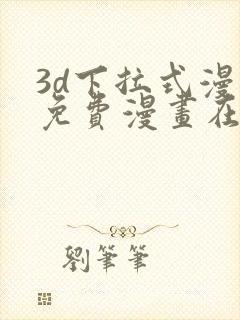 3d下拉式漫
免費漫畫在
劉筆筆